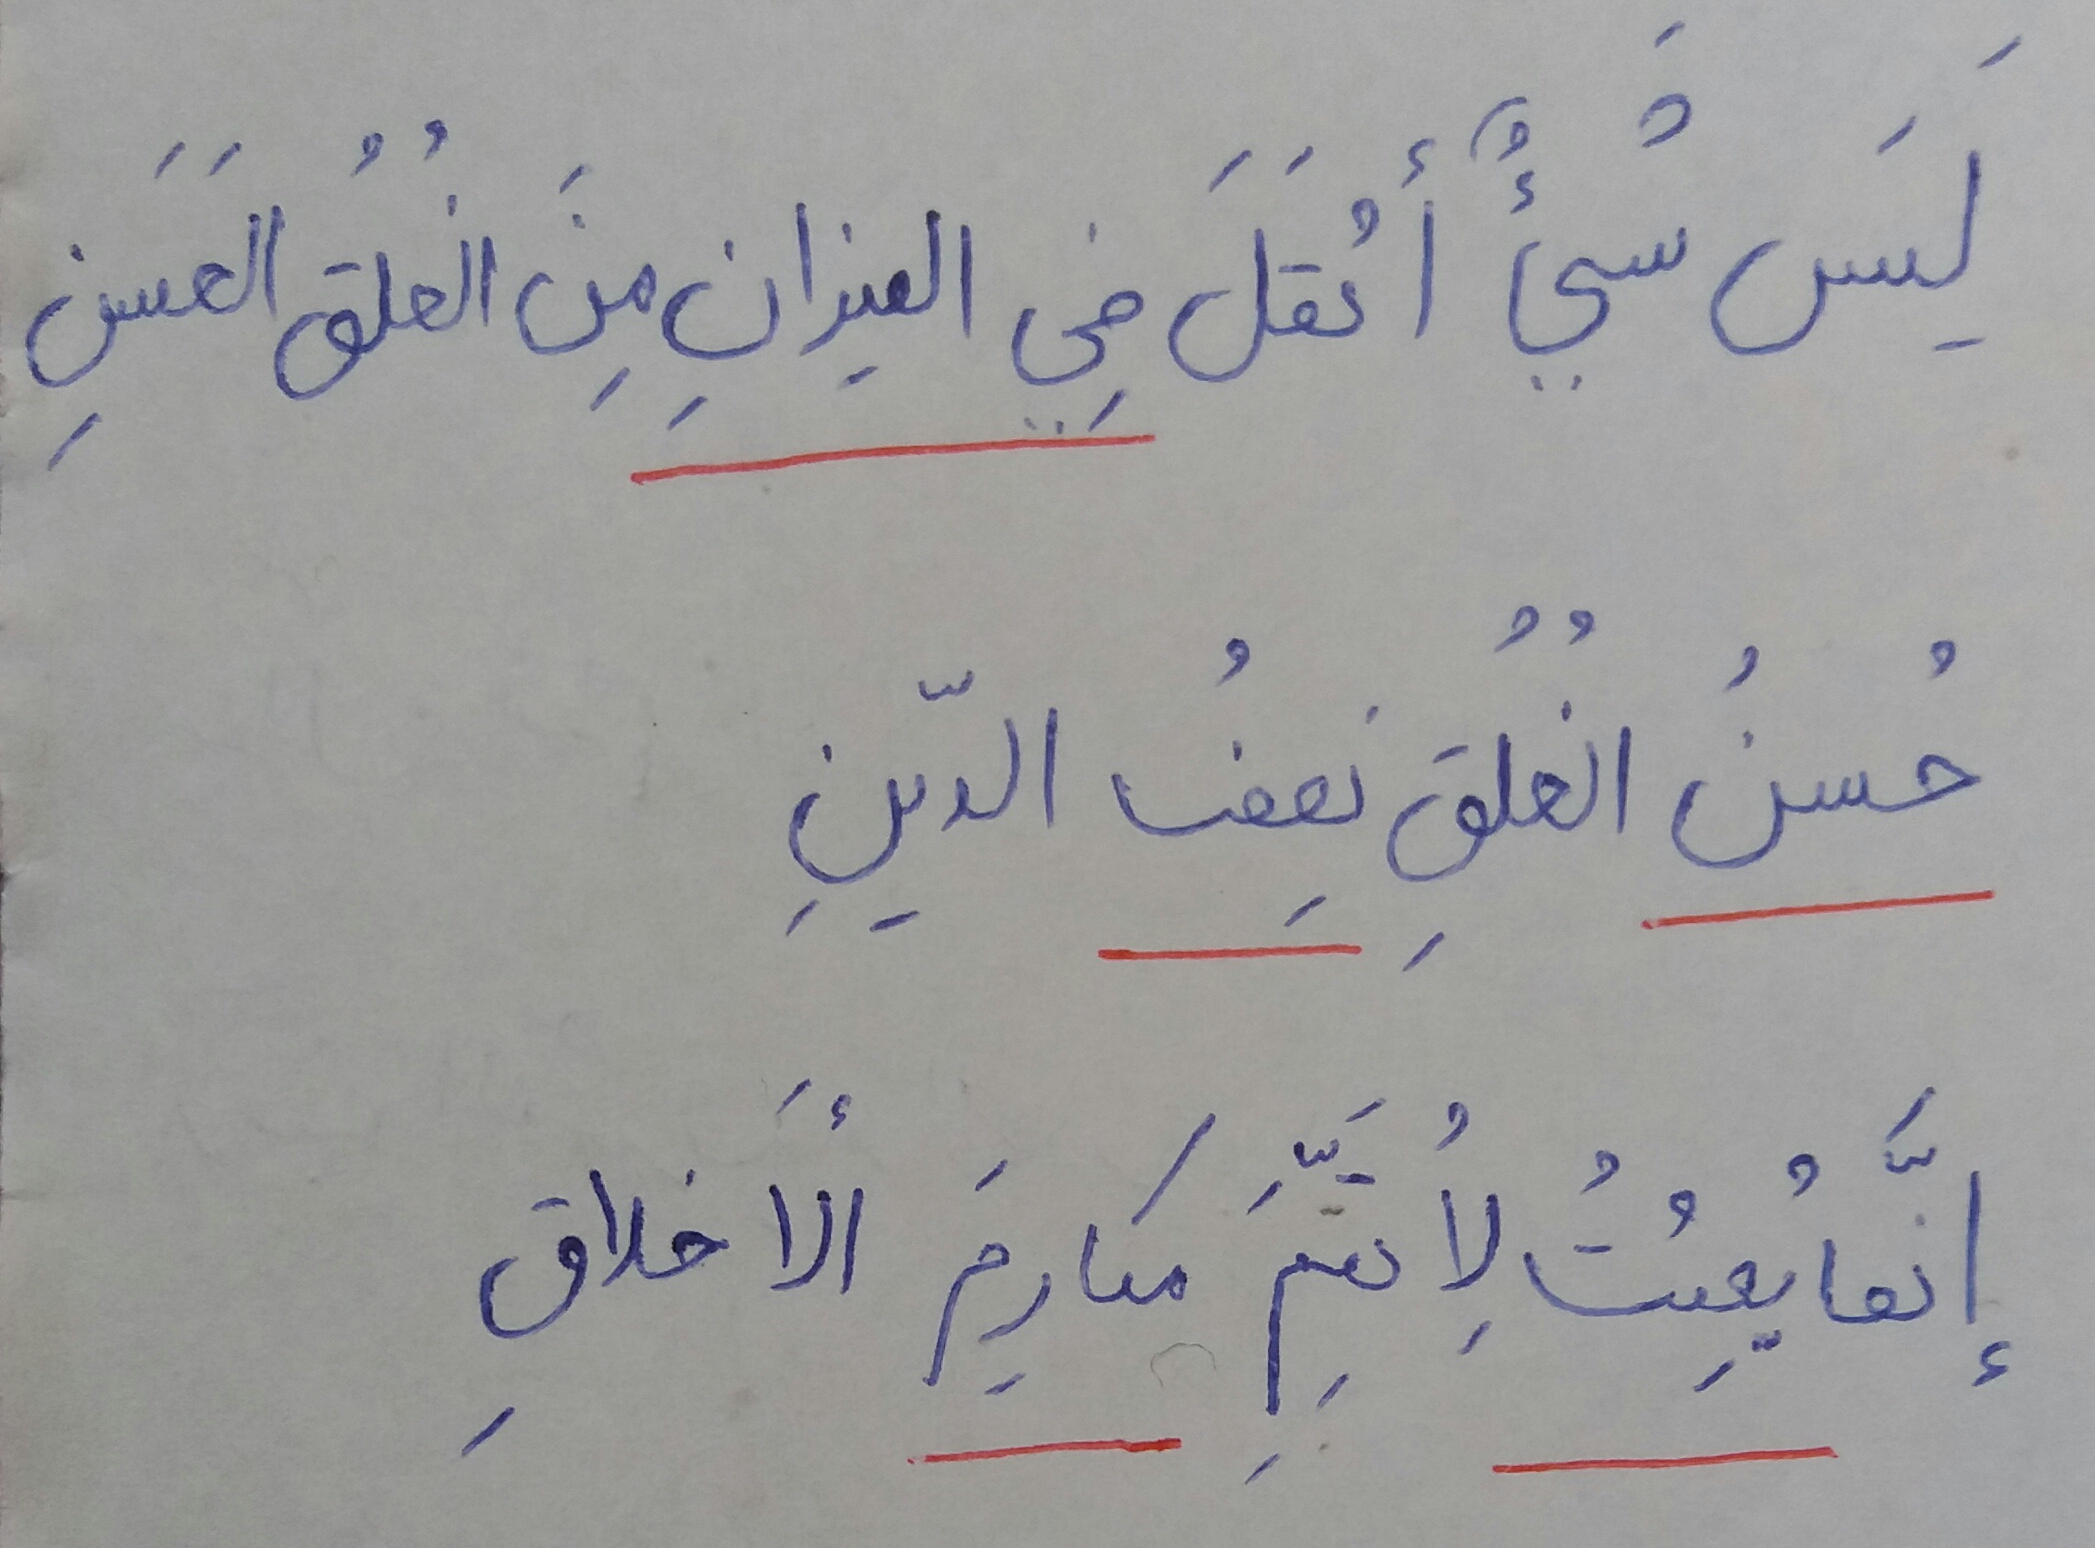 لَيسَ شَيْأٌ أَثقَلَ فِي الميزانِ مِنَ الخُلُق الحَسَنِ
حُسنُ الخُلُقِ نِصفُ الدّينِ
إنَّما بُعِثتُ لِأُتَمِّمَ مَكارِمَ الأَخلاقِ